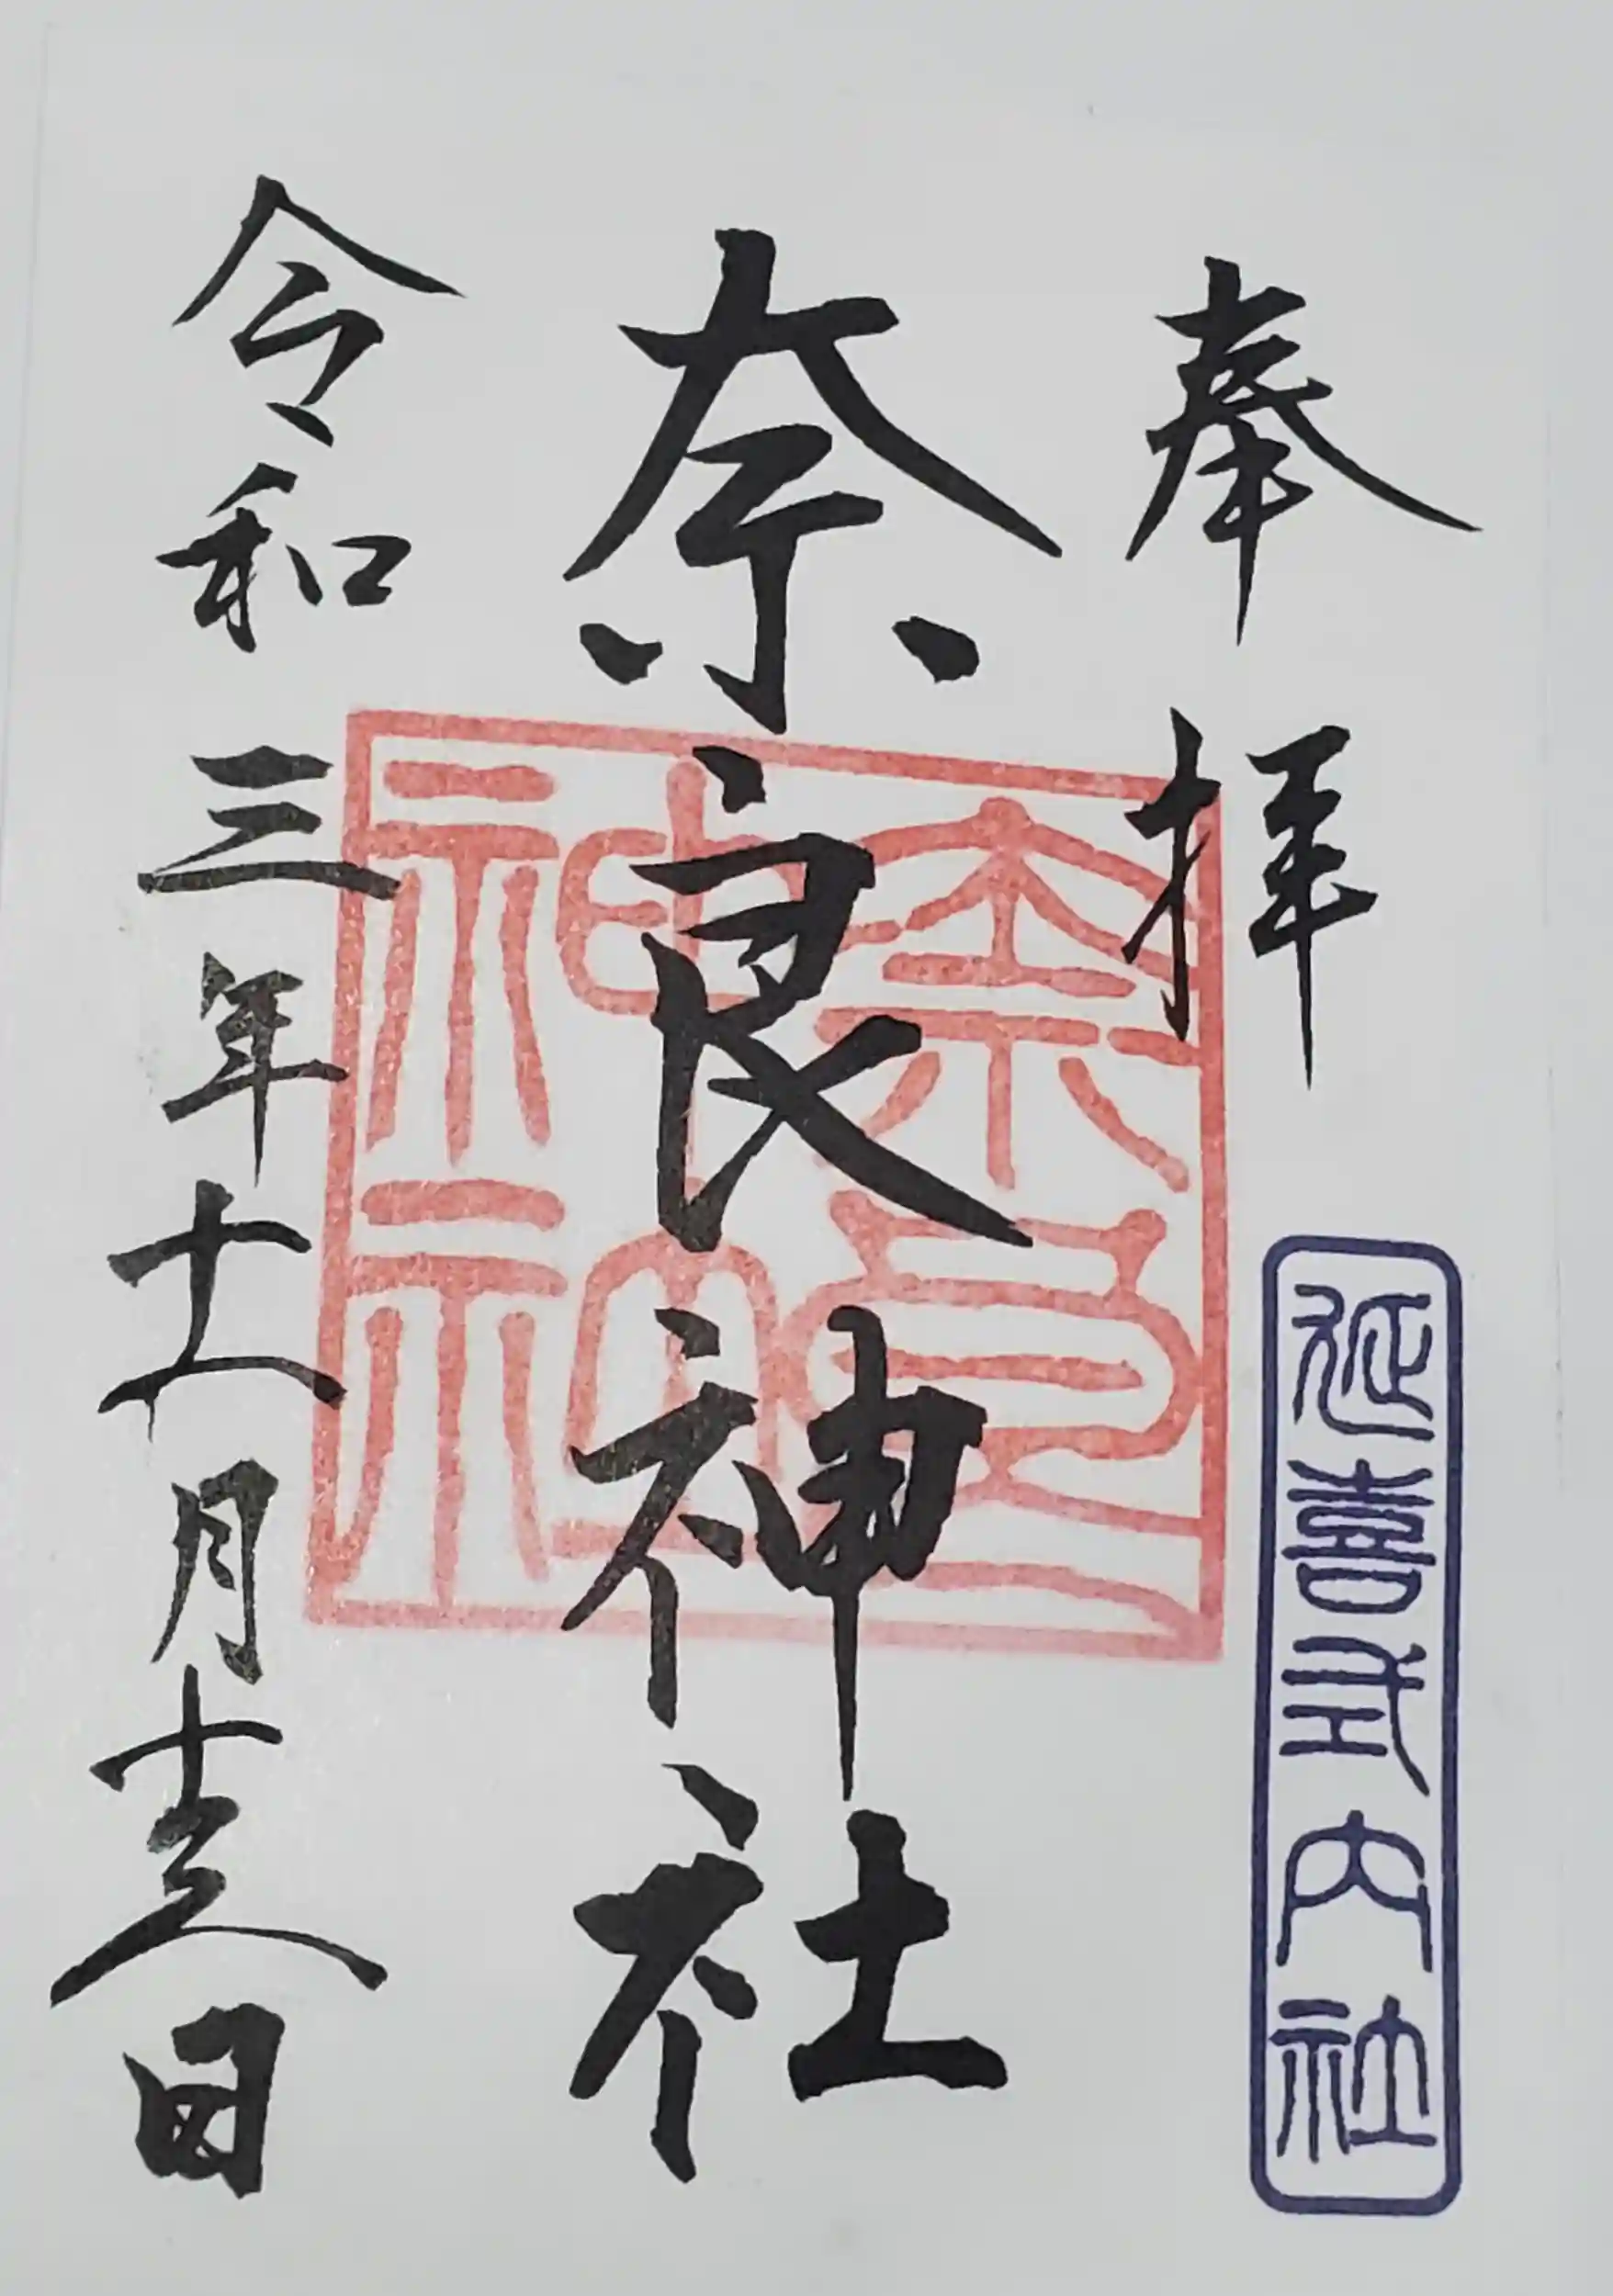 奉拝
延喜式内社
奈良神社
奈良
神社
令和三年十一月十三日